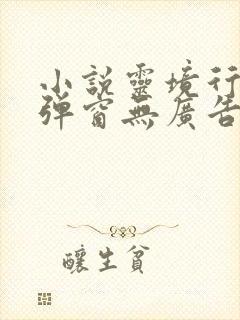 小說靈境行
彈窗無廣告
釀生貧